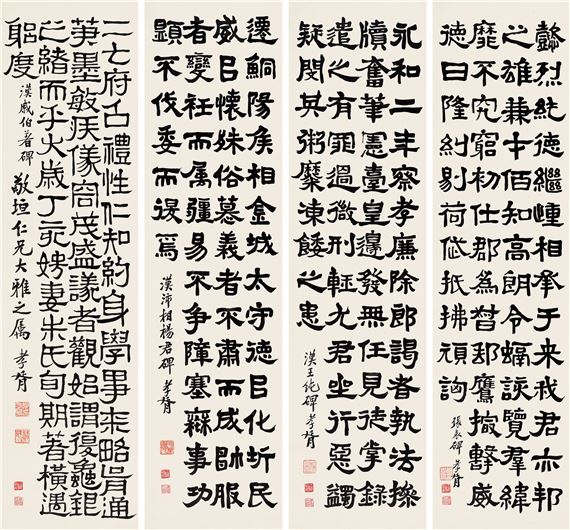 懿烈純德繼踵相承于來我君亦邦
之雄兼中佰知高朗令融詠覽群緯
靡不究窮初仕郡爲督郵鷹撮擊威
德曰隆糾剔荷慝抵拂頑訩
張表碑 孝胥
永和二年察孝廉除郎謁者執法操
牘奮筆憲臺皇邊發無任見徒掌錄
遣之有罪過微刑輕尤君坐行惡蠲
疑閔其粥糜凍餒之患
漢王純碑 孝胥
遷鮦陽侯相金城太守德以化圻民
威以懷殊俗慕義者不肅而成帥服
者變衽而屬疆易不爭障塞事功
顯不伐委而退焉
漢沛相楊君碑 孝胥
二亡府占禮性仁知約身學事未略肖通
英墨敏疾儀容茂盛議者觀始謂復龜銀
之緒而乎大歲丁亥娉妻朱氏旬期著橫遇
躬度
漢戚伯著碑
敬垣仁兄大雅之屬 孝胥